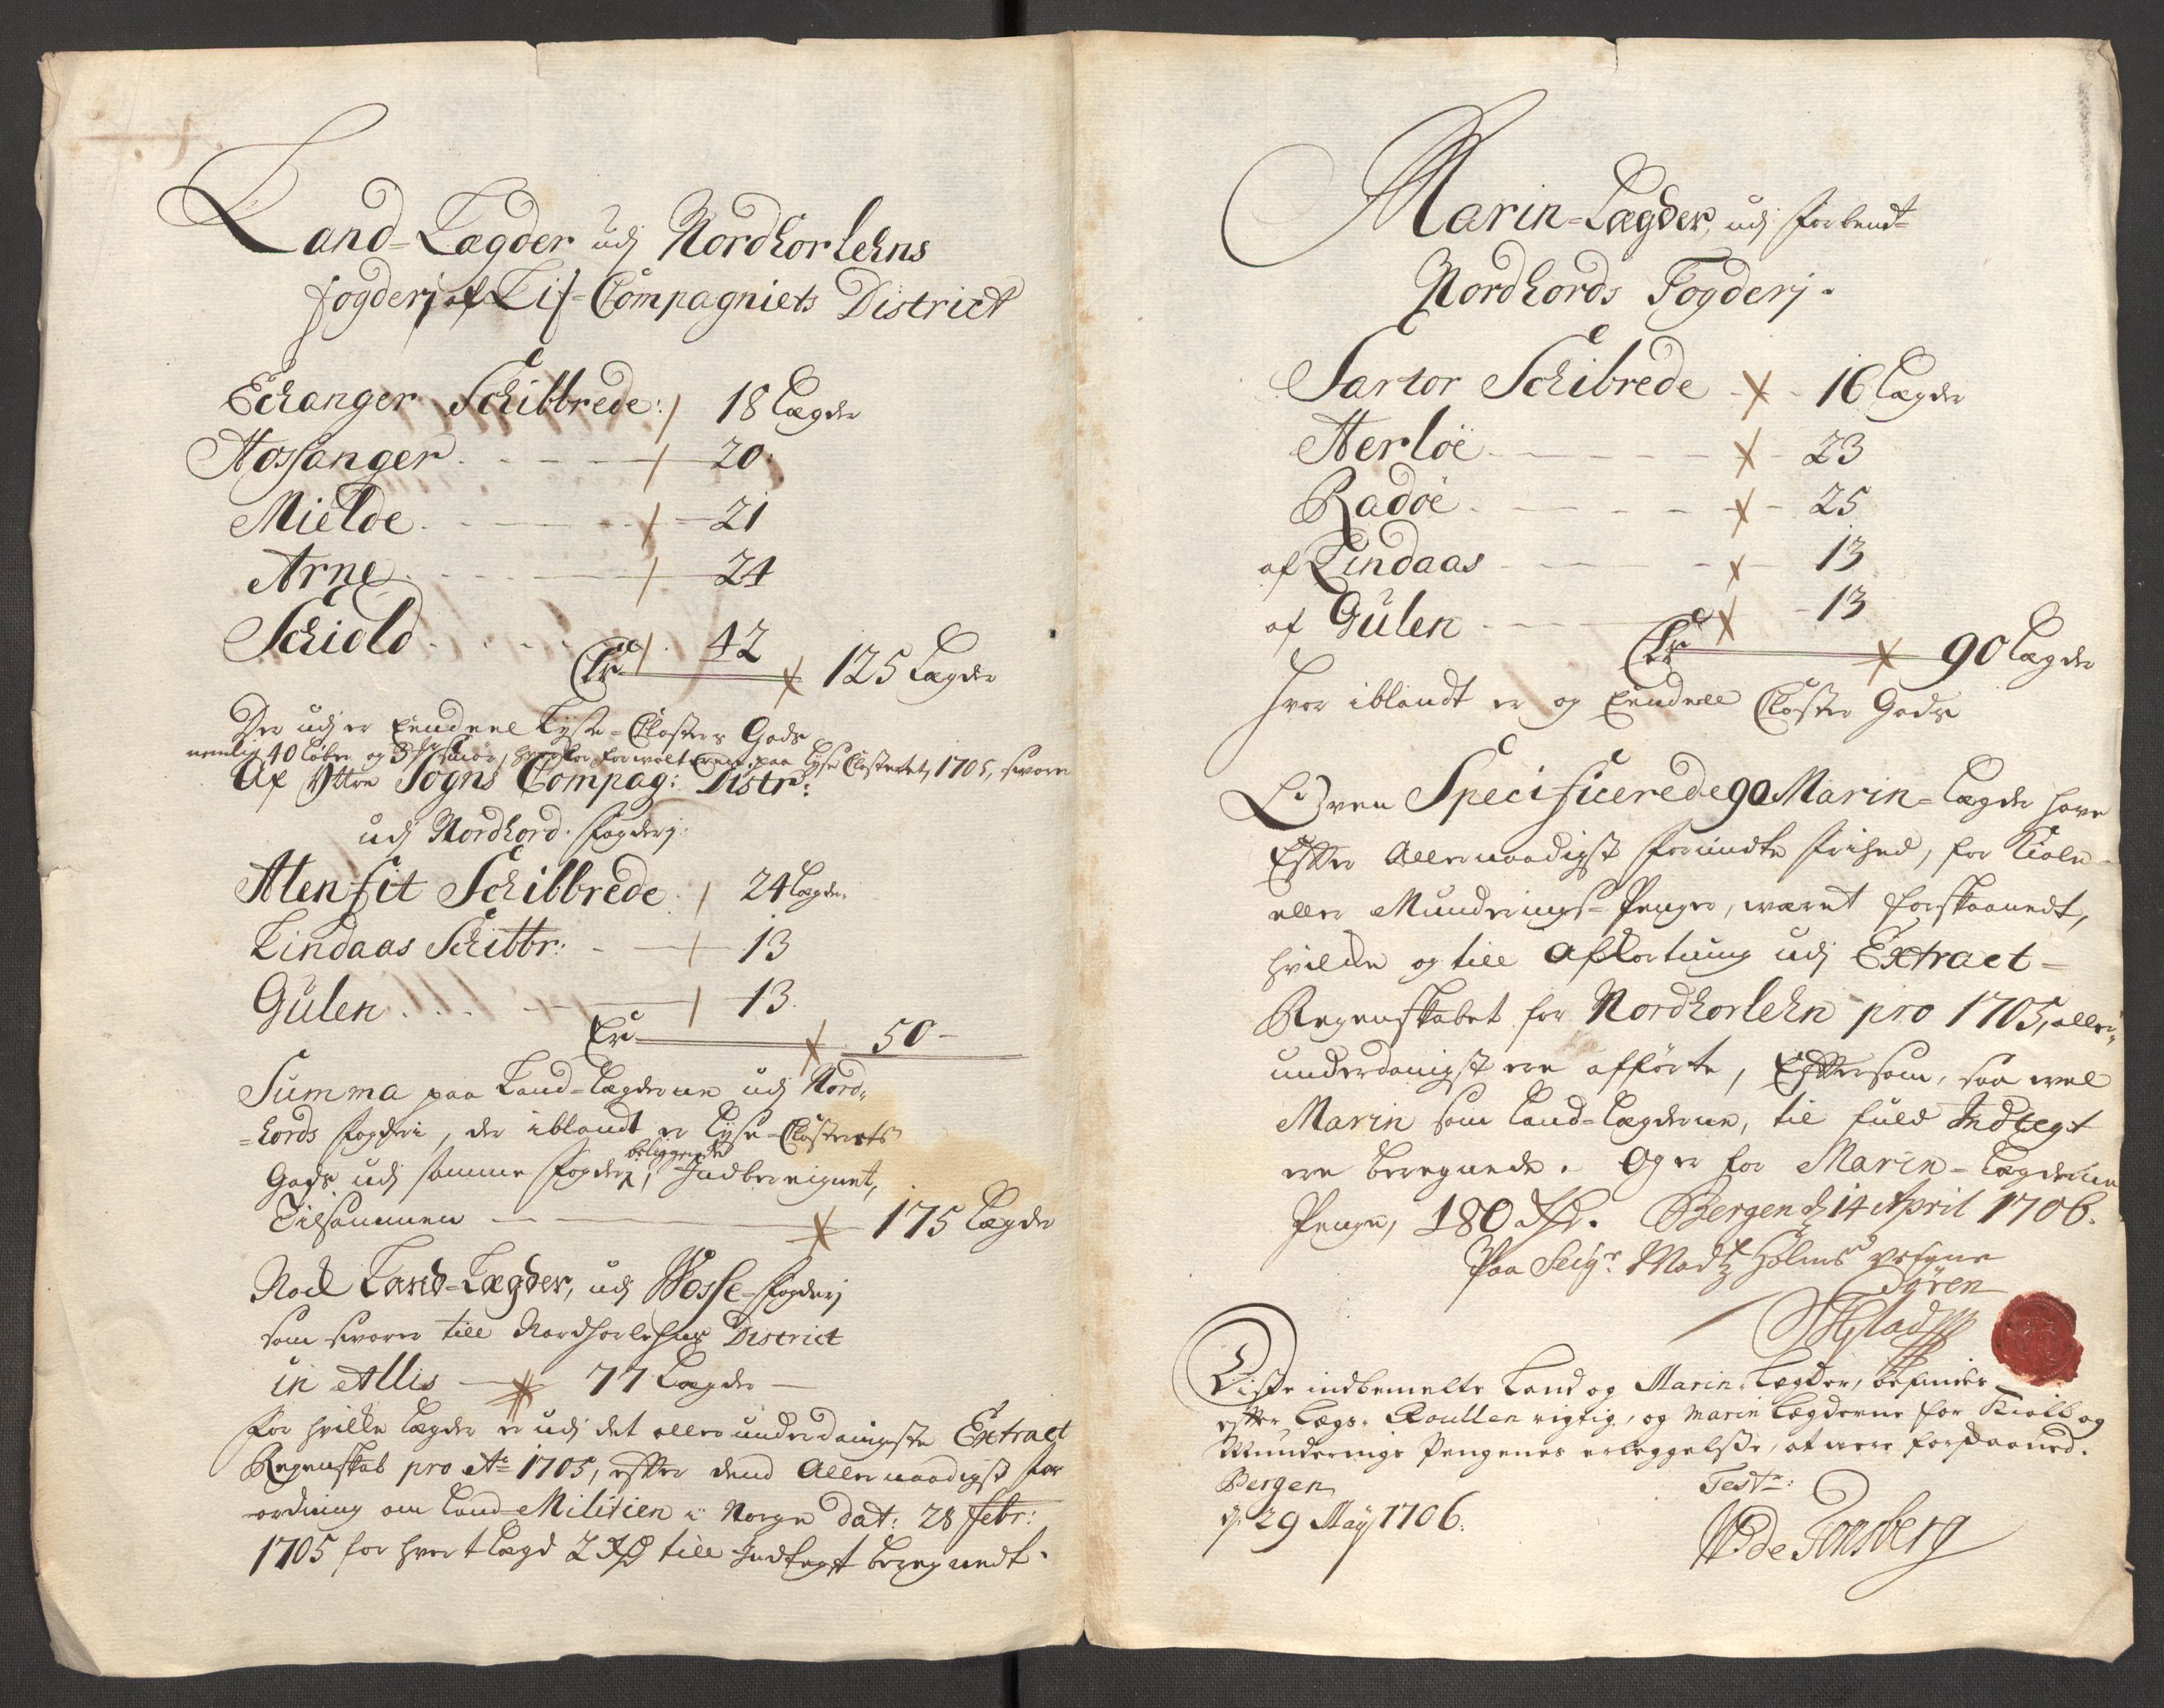 Land-Lægder udj Nordhorlehns
fogderj af Lif-Compagniets District
Echanger Schibbrede: 18 Lægder
Hossanger 20
Mielde 21
Arne 24
Schiold 42
Er 125 Lægder
Der udj er Eendeel Lyse-Closters Gods
nemlig 40 Løber og 3 smør, forwalteren paa Lyse Closteret, 1705, svarer
Af Yttre Sogns Compag: Distr:
udj Nordhord. fogderj:
Alenfit Schibbrede 24 Lægder.
Lindaas Schibbr: 13
Gulen 13
Er 50
Summa paa Land-Lægderne udj Nord-
hords fogderi, der iblandt er Lyse-Closterets
Gods udj samme fogderj beliggende, Indbereignet,
Tilsammen 175 Lægder
Noch Land-Lægder, udj Wosse-fogderj
som svarer till Nordhorlehns District
in Allis 77 Lægder
For hvilke Lægder er udj det allerunderdanigste Extract
Regenskab pro Ao 1705, efter dend Allernaadigst for
ordning om Land-Militien i Norge dat: 28 febr:
1705 for hver Lægd 2 Rd till Indtegt beregnedt.
Marin-Lægder, udj forbend-
Nordhords Fogderj.
Sartor Schibrede 16 Lægder
Herlöe 23
Radöe 25
af Lindaas 13
af Gulen 13
Er 90 Lægder
hvor iblandt er og Eendeel Closter Gods
Oven Specificerede 90 Marin-Lægder have
Efter Allernaadigst forundte frihed, for Kiole-
eller Munderings-Penger, været forskaanedt,
hvilke og till Afkortning udj Extract-
Regenskabet for Nordhorlehn pro 1705, aller-
underdanigst ere afförte, Eftersom, saa vel
Marin som Land-Lægderne, til fuld Indtegt
ere beregnede. Og er for Marin-Lægderne
Penge, 180 Rd. Bergen d 14 April 1706.
Paa Seigr. Madtz Holms vegne
Sören
Disse indbemelte Land og Marin-Lægder, befindes
efter Lægs-Roullen rigtig, og Marin Lægderne for Kiolb og
Munderings Pengenes erleggelse, at were forskaaned.
Bergen Test:
d. 29 May 1706.
de Tonsberg